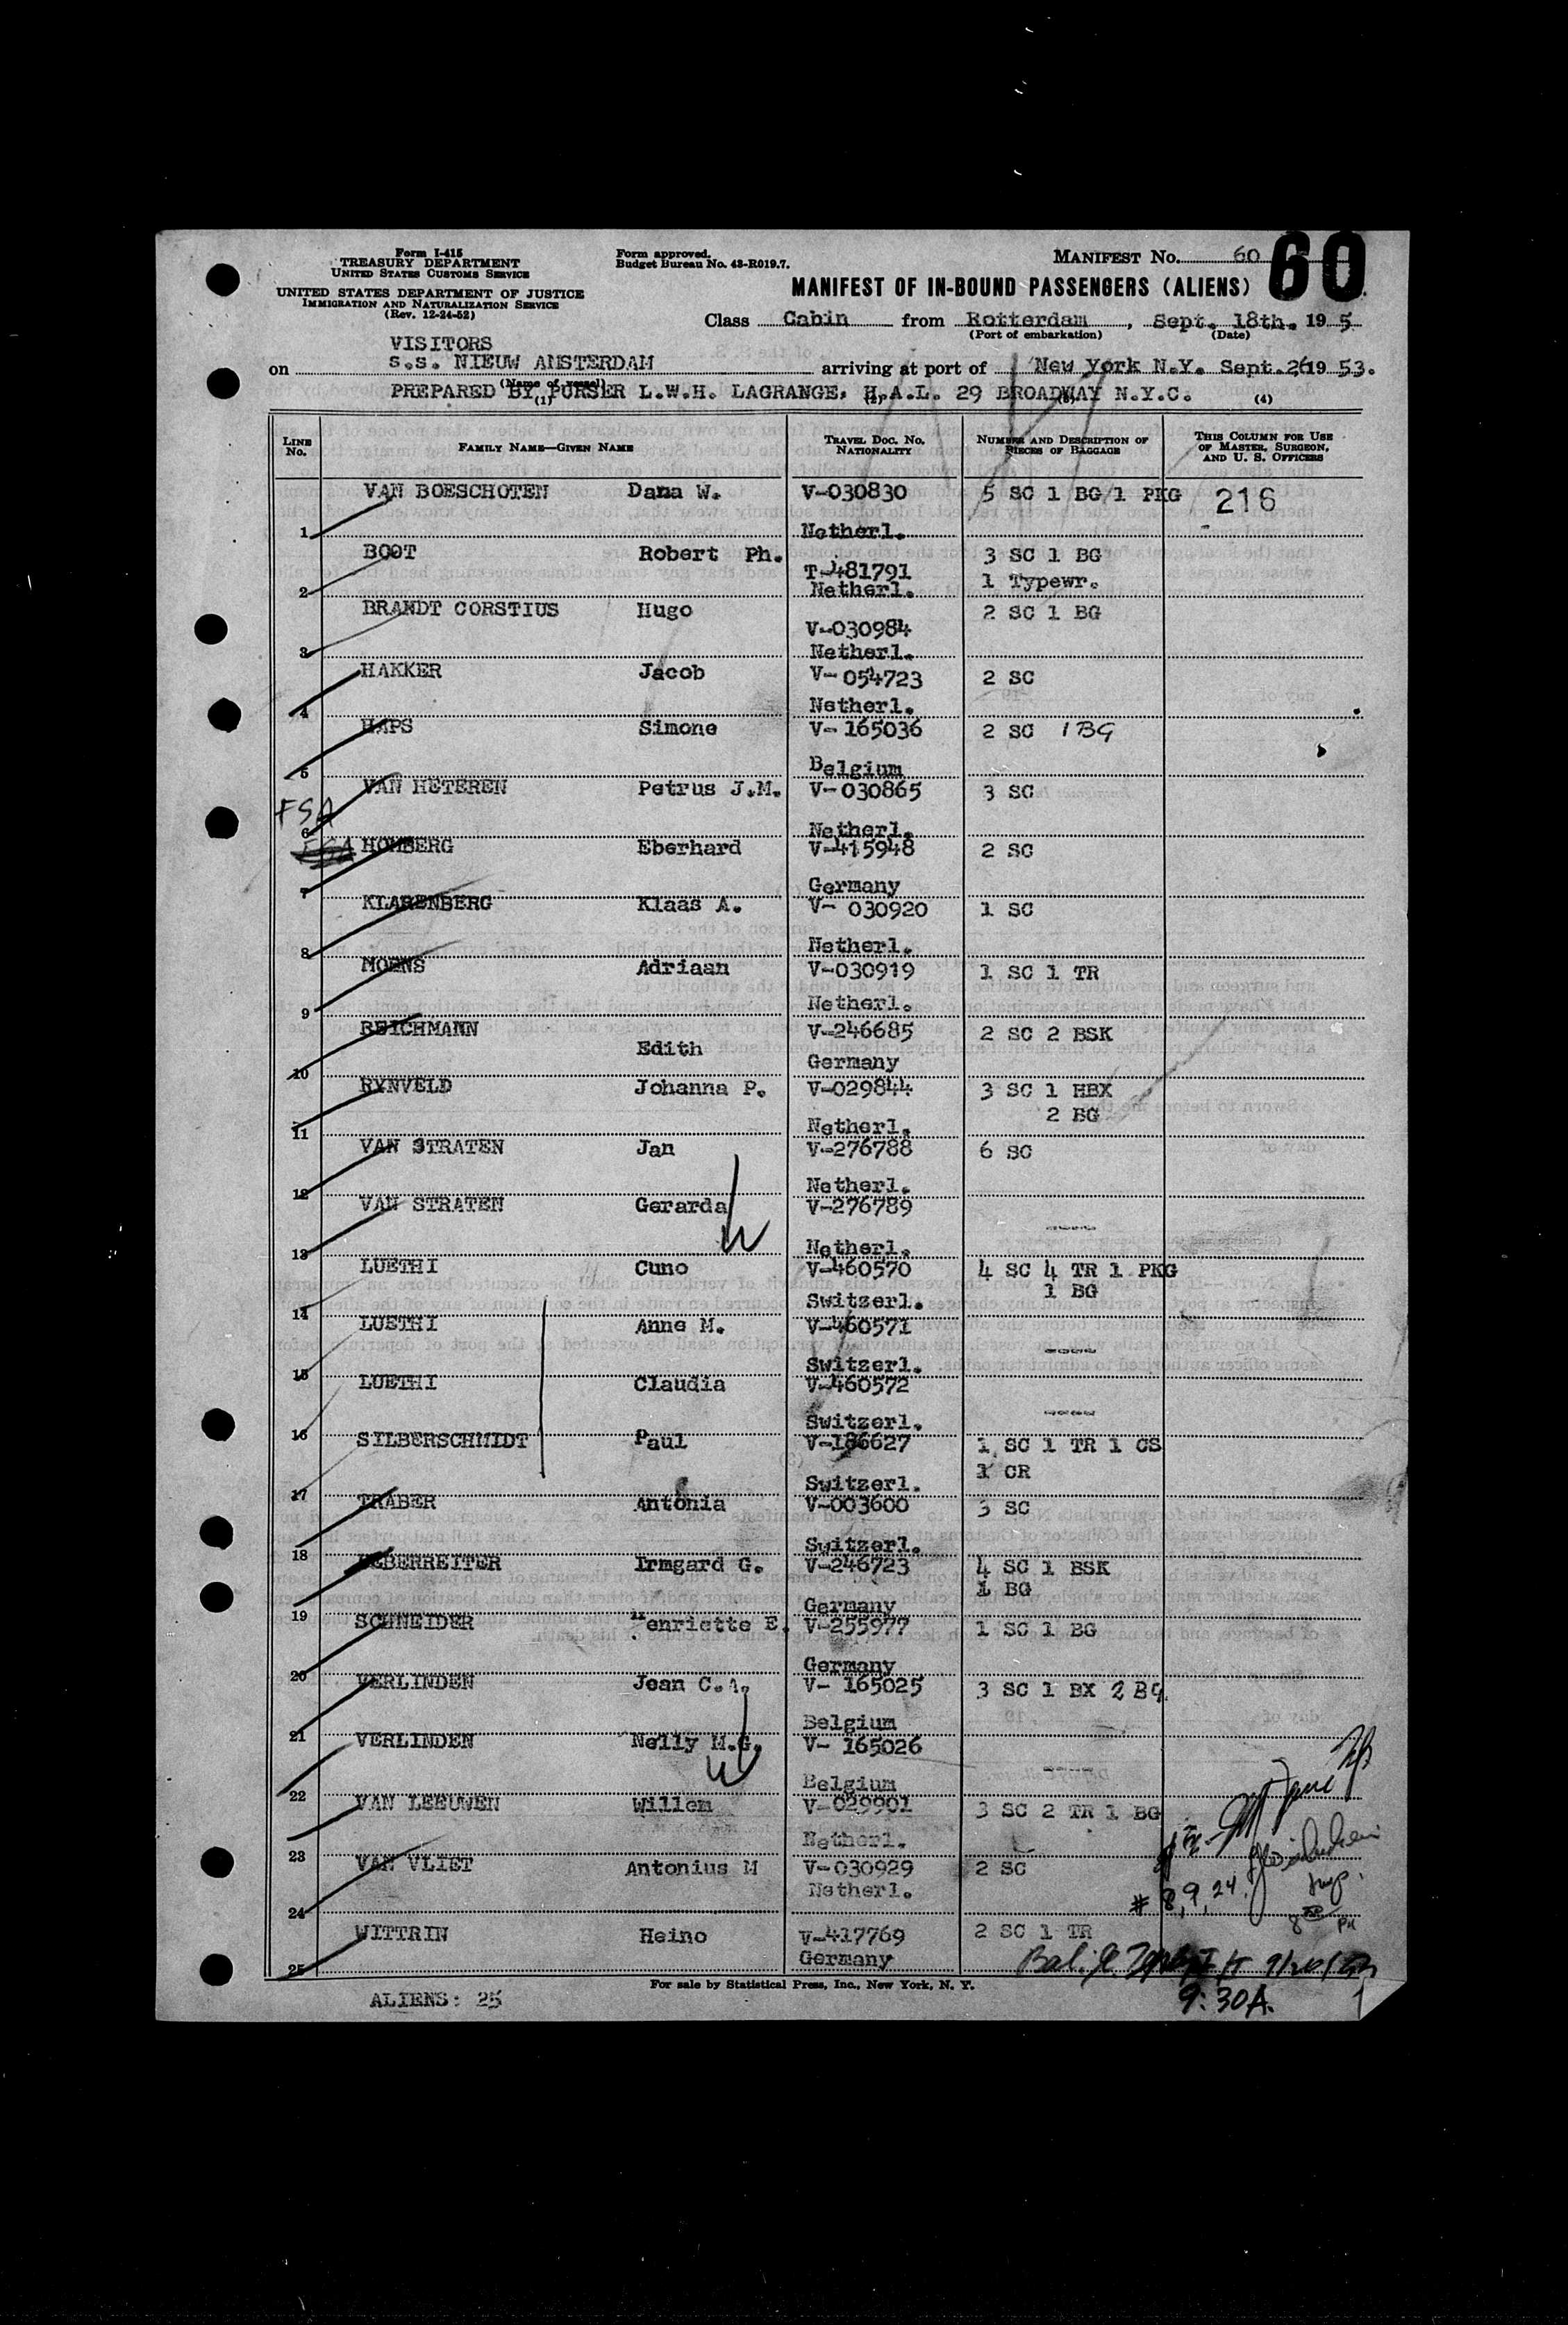 Form I-415
TREASURY DEPARTMENT
UNITED STATES CUSTOMS SERVICE
UNITED STATES DEPARTMENT OF JUSTICE
IMMIGRATION AND NATURALIZATION SERVICE
(Rev. 12-24-52)
Form approved.
Budget Bureau No. 43-R019.7.
MANIFEST No. 60
60
MANIFEST OF IN-BOUND PASSENGERS (ALIENS)
Class Cabin from Rotterdam, Sept. 18th. 195
(Port of embarkation) (Date)
VISITORS
on s.s. NIEUW AMSTERDAM arriving at port of New York N.Y. Sept. 26 1953.
(Name of vessel)
PREPARED BY PURSER L.W.H. LAGRANGE, H.A.L. 29 BROADWAY N.Y.C.
(1) (2) (3) (4)
LINE No. FAMILY NAME—GIVEN NAME TRAVEL DOC. No. NATIONALITY NUMBER AND DESCRIPTION OF PIECES OF BAGGAGE THIS COLUMN FOR USE OF MASTER, SURGEON, AND U. S. OFFICERS
VAN BOESCHOTEN Dana W. V-030830 5 SC 1 BG 1 PKG 216
1 Netherl.
BOOT Robert Ph. 3 SC 1 BG
T-481791 1 Typewr.
2 Netherl.
BRANDT CORSTIUS Hugo 2 SC 1 BG
V-030984
3 Netherl.
HAKKER Jacob V-054723 2 SC
4 Netherl.
HAPS Simone V-165036 2 SC 1 BG
5 Belgium
VAN HETEREN Petrus J.M. V-030865 3 SC
FSA
6 Netherl.
FSA HOMBERG Eberhard V-415948 2 SC
7 Germany
KLARENBERG Klaas A. V-030920 1 SC
8 Netherl.
MOENS Adriaan V-030919 1 SC 1 TR
9 Netherl.
REICHMANN V-246685 2 SC 2 BSK
Edith
10 Germany
RYNVELD Johanna P. V-029844 3 SC 1 HBX
2 BG
11 Netherl.
VAN STRATEN Jan V-276788 6 SC
12 Netherl.
VAN STRATEN Gerarda V-276789
----
13 Netherl.
LUETHI Cuno V-460570 4 SC 4 TR 1 PKG
1 BG
14 Switzerl.
LUETHI Anne M. V-460571
----
15 Switzerl.
LUETHI Claudia V-460572
----
16 Switzerl.
SILBERSCHMIDT Paul V-186627 1 SC 1 TR 1 CS
1 CR
17 Switzerl.
TRABER Antonia V-003600 3 SC
18 Switzerl.
UEBERREITER Irmgard G. V-246723 4 SC 1 BSK
1 BG
19 Germany
SCHNEIDER Henriette E. V-255977 1 SC 1 BG
20 Germany
VERLINDEN Jean C.A. V-165025 3 SC 1 BX 2 BG
21 Belgium
VERLINDEN Nelly M.G. V-165026
22 Belgium
VAN LEEUWEN Willem V-029901 3 SC 2 TR 1 BG
23 Netherl.
VAN VLIET Antonius M V-030929 2 SC
Netherl.
24 # 8, 9, 24
WITTRIN Heino V-417769 2 SC 1 TR
25 Germany
For sale by Statistical Press, Inc., New York, N. Y.
ALIENS: 25
9:30 A. 1